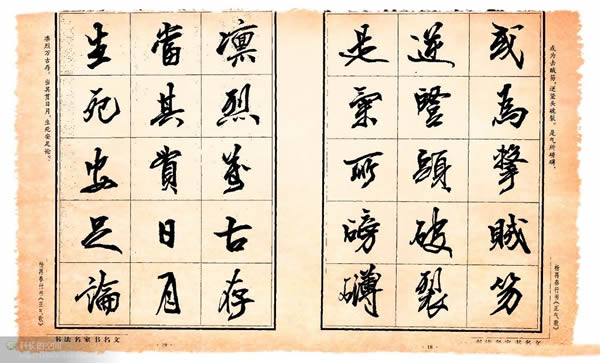 或为击贼笏,逆竖头破裂。是气所磅礴,
杨再春行书《正气歌》
或為擊賊笏
逆豎頭破裂
是氣所磅礴
书法名家书名文
·18·
凛烈萬古存
當其貫日月
生死安足論
凛烈万古存。当其贯日月,生死安足论?
杨再春行书《正气歌》
书法名家书名文
·19·